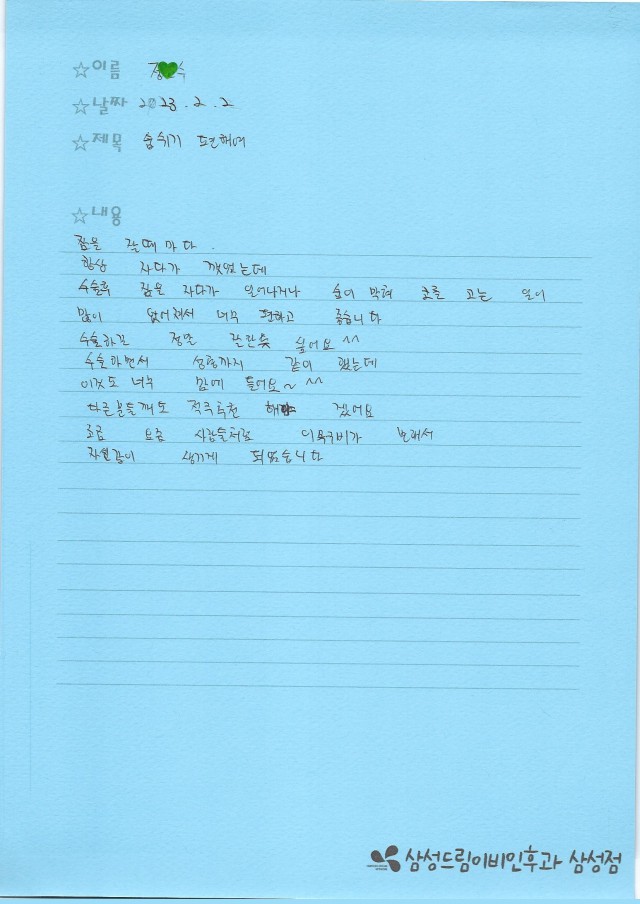 ☆이름 정💚수
☆날짜 2023.2.2
☆제목 숨쉬기 편해여
☆내용
잠을 잘때마다.
항상 자다가 깼었는데
수술후 잠을 자다가 일어나거나 숨이 막혀 코를 고는 일이
많이 없어져서 너무 편하고 좋습니다
수술하곤 정말 잘한듯 싶어요^^
수술하면서 성형까지 같이 했는데
이것도 너무 맘에 들어요~^^
다른분들께도 적극추천 해야 겠어요
조금 요즘 사람들처럼 이목구비가 또래서
자신감이 생기게 되었습니다
삼성드림이비인후과 삼성점